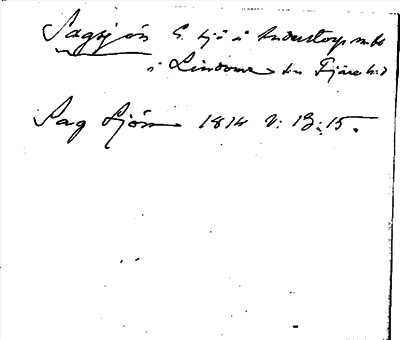 Sagsjön S. sjö i Anderstorp m.bo
i Lindome sn Fjäre h:d
Sag Sjön 1814 V: 13: 15.